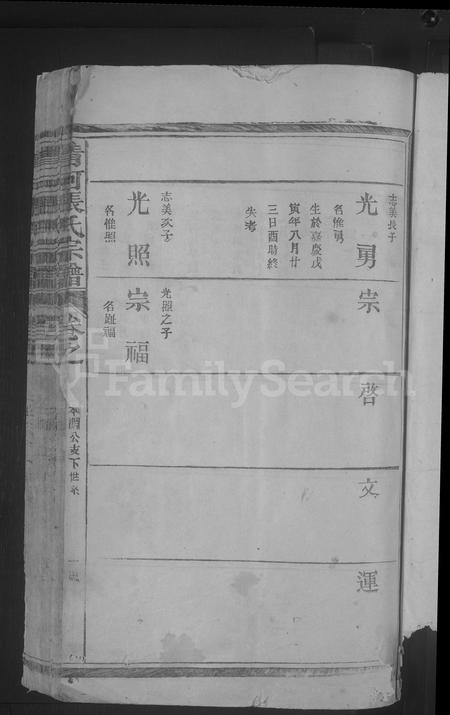 志美長子
光勇
名惟勇
生於嘉慶戊
寅年八月廿
三日酉時終
失考
宗
啓
文
運
志美次子
光照
名惟照
光照之子
宗福
清河張氏宗譜
卷之
公支下世系
FamilySearch